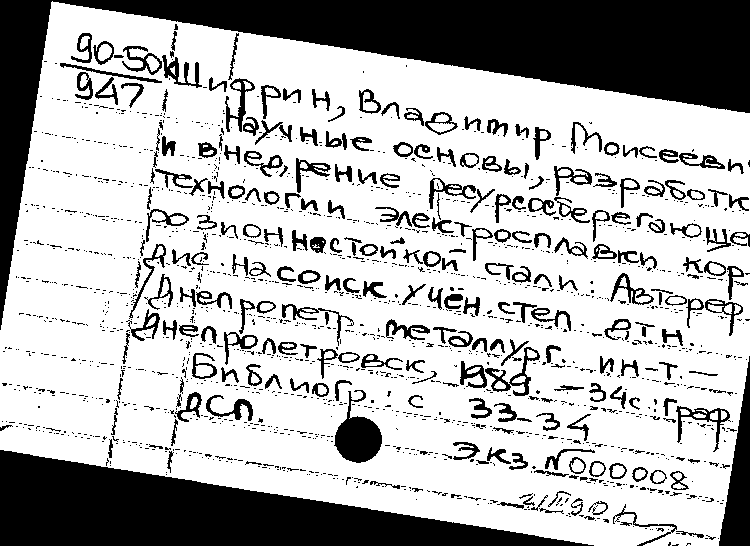 90-50к
947
Шифрин, Владимир Моисеевич
Научные основы, разработк
и внедрение ресурсосберегающе
технологии электросплавки кор-
розионностойкой стали: Автореф.
дис. на соиск. учён. степ. дтн.
/Днепропетр. металлург. ин-т. —
Днепропетровск, 1989. — 34с.: граф
Библиогр.: с. 33-34
ДСП.
Экз. №000008
21/III 90